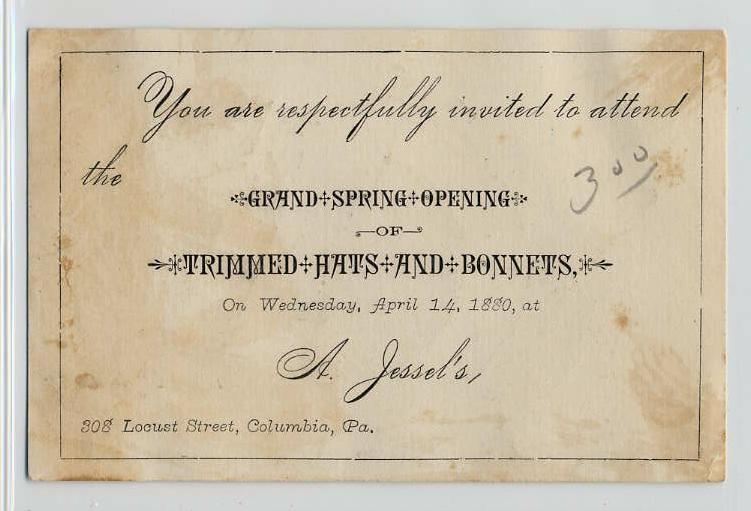 You are respectfully invited to attend
the
GRAND SPRING OPENING
OF
TRIMMED HATS AND BONNETS,
On Wednesday, April 14, 1880, at
A. Jessel's,
308 Locust Street, Columbia, Pa.
3 00